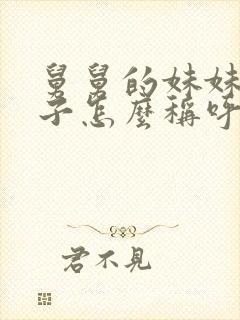 舅舅的妹妹
子怎麼稱呼
君不見